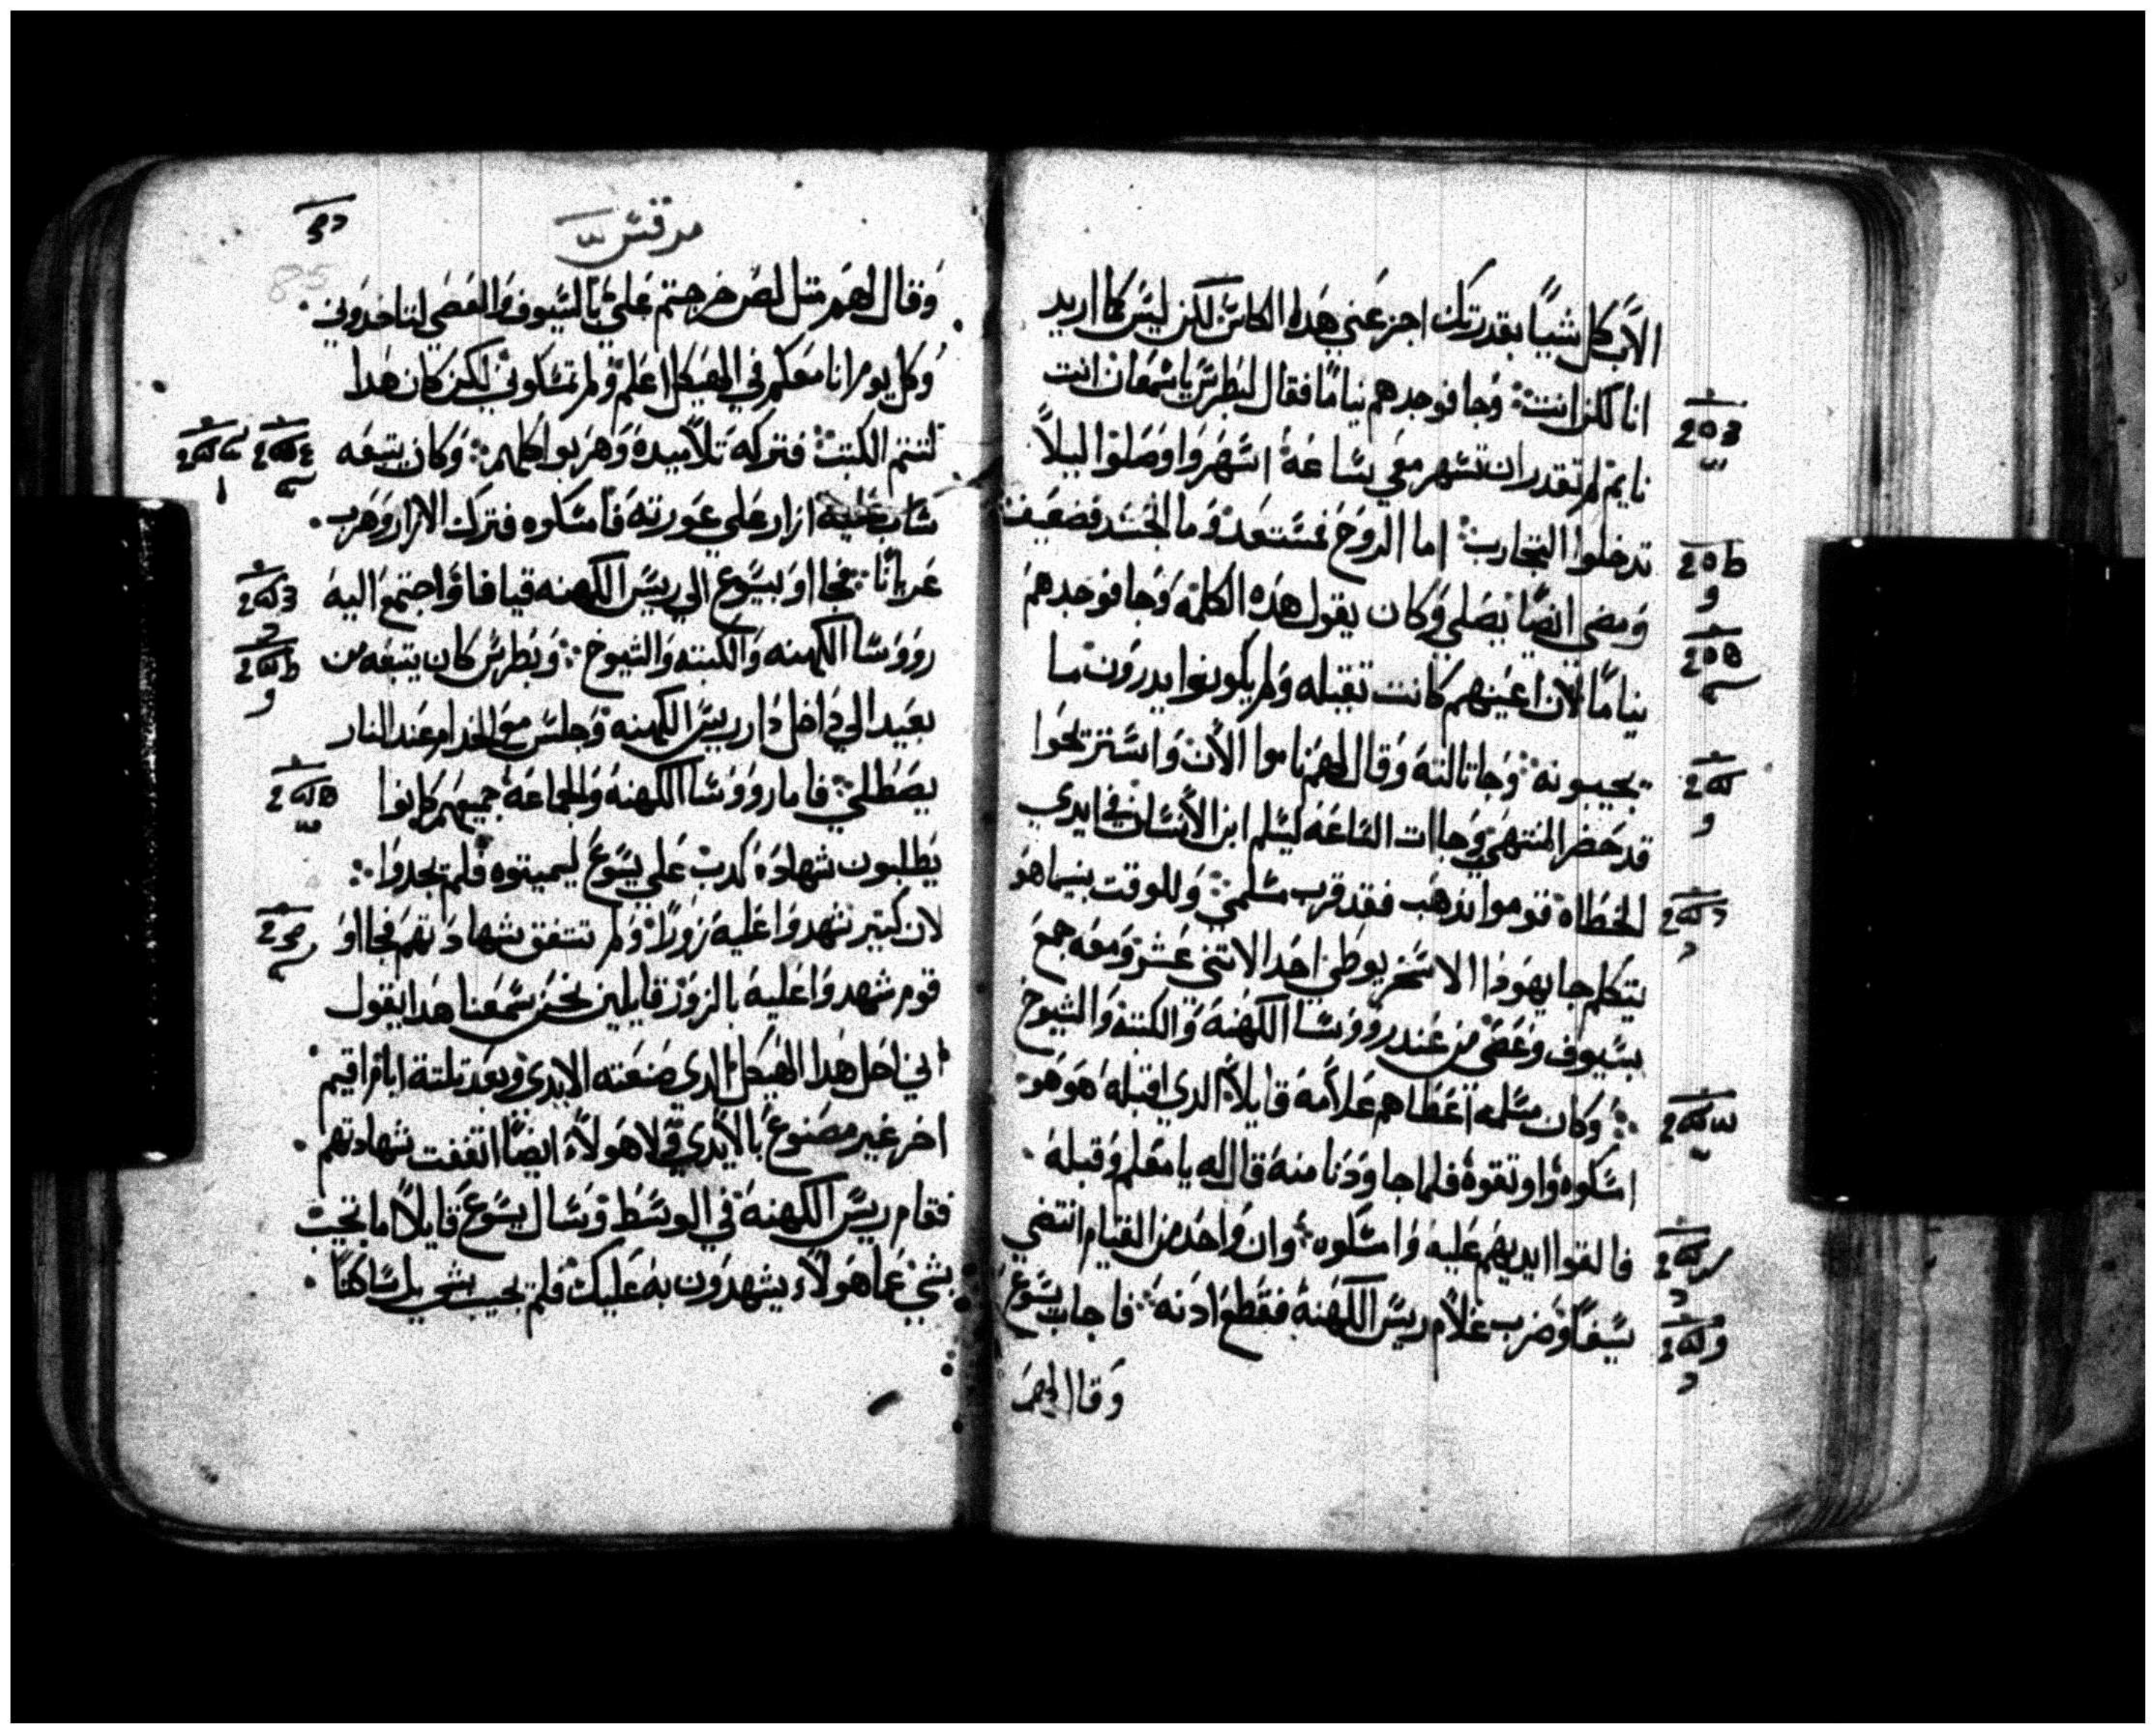 الاب كل شيا بقدرتك اجز عني هده الكاس لكن ليس كما اريد
انا لكن انت وجا فوجدهم نياما فقال لبطرس يا سمعان انت
نايم لم تقدر ان تسهر معي ساعة اسهروا وصلوا ليلا
تدخلوا التجارب اما الروح فمستعد وما الجسد فضعيف
ومضى ايضا يصلي وكان يقول هده الكلمه وجا فوجدهم
نياما لان اعينهم كانت تقيله ولم يكونوا يدرون ما
يجيبونه وجا تالتة وقال لهم ناموا الان واستريحوا
قد حضر المنتهى وجاات الساعة ليسلم ابن الانسان في ايدي
الخطاه قوموا نذهب فقد قرب مسلمي وللوقت بينما هو
يتكلم جا يهودا الاسخريوطي احد الاتني عشر ومعه جمع
بسيوف وعصي من عند رووسا الكهنة والكتبة والشيوخ
وكان مسلمه اعطاهم علامة قايلا الدي اقبله هو هو
امسكوه واوتقوه فلما جا ودنا منه قال له يا معلم وقبله
فالقوا ايديهم عليه وامسكوه وان واحد من القيام انتضى
سيفا وضرب غلام ريس الكهنة فقطع ادنه فاجاب يسوع
وقال لهم
مرقس
85
وقال لهم متل لص خرجتم علي بالسيوف والعصي لتاخدوني
وكل يوم انا معكم في الهيكل اعلم ولم تمسكوني لكن كان هدا
لتتم الكتب فتركه تلاميده وهربوا كلهم وكان يتبعه
شاب عليه ازار على عورته فامسكوه فترك الازار وهرب
عريانا فجااو بيسوع الى ريس الكهنه قيافا واجتمع اليه
رووسا الكهنه والكتبه والشيوخ وبطرس كان يتبعه من
بعيد الى داخل دار ريس الكهنه وجلس مع الخدام عند النار
يصطلي فاما رووسا الكهنة والجماعة جميعهم كانوا
يطلبون شهادة كدب على يسوع ليميتوه فلم يجدوا
لان كتير شهدوا عليه زورا ولم تتفق شهادتهم فجااو
قوم شهدوا عليه بالزور قايلين نحن سمعنا هدا يقول
اني احل هدا الهيكل الدي صنعته الايدي وبعد تلتة ايام اقيم
اخر غير مصنوع بالايدي ولا هولاء ايضا اتفقت شهادتهم
فقام ريس الكهنة في الوسط وسال يسوع قايلا ما تجيب
بشي عما هولاء يشهدون به عليك فلم يجيب بشي بل ساكتا